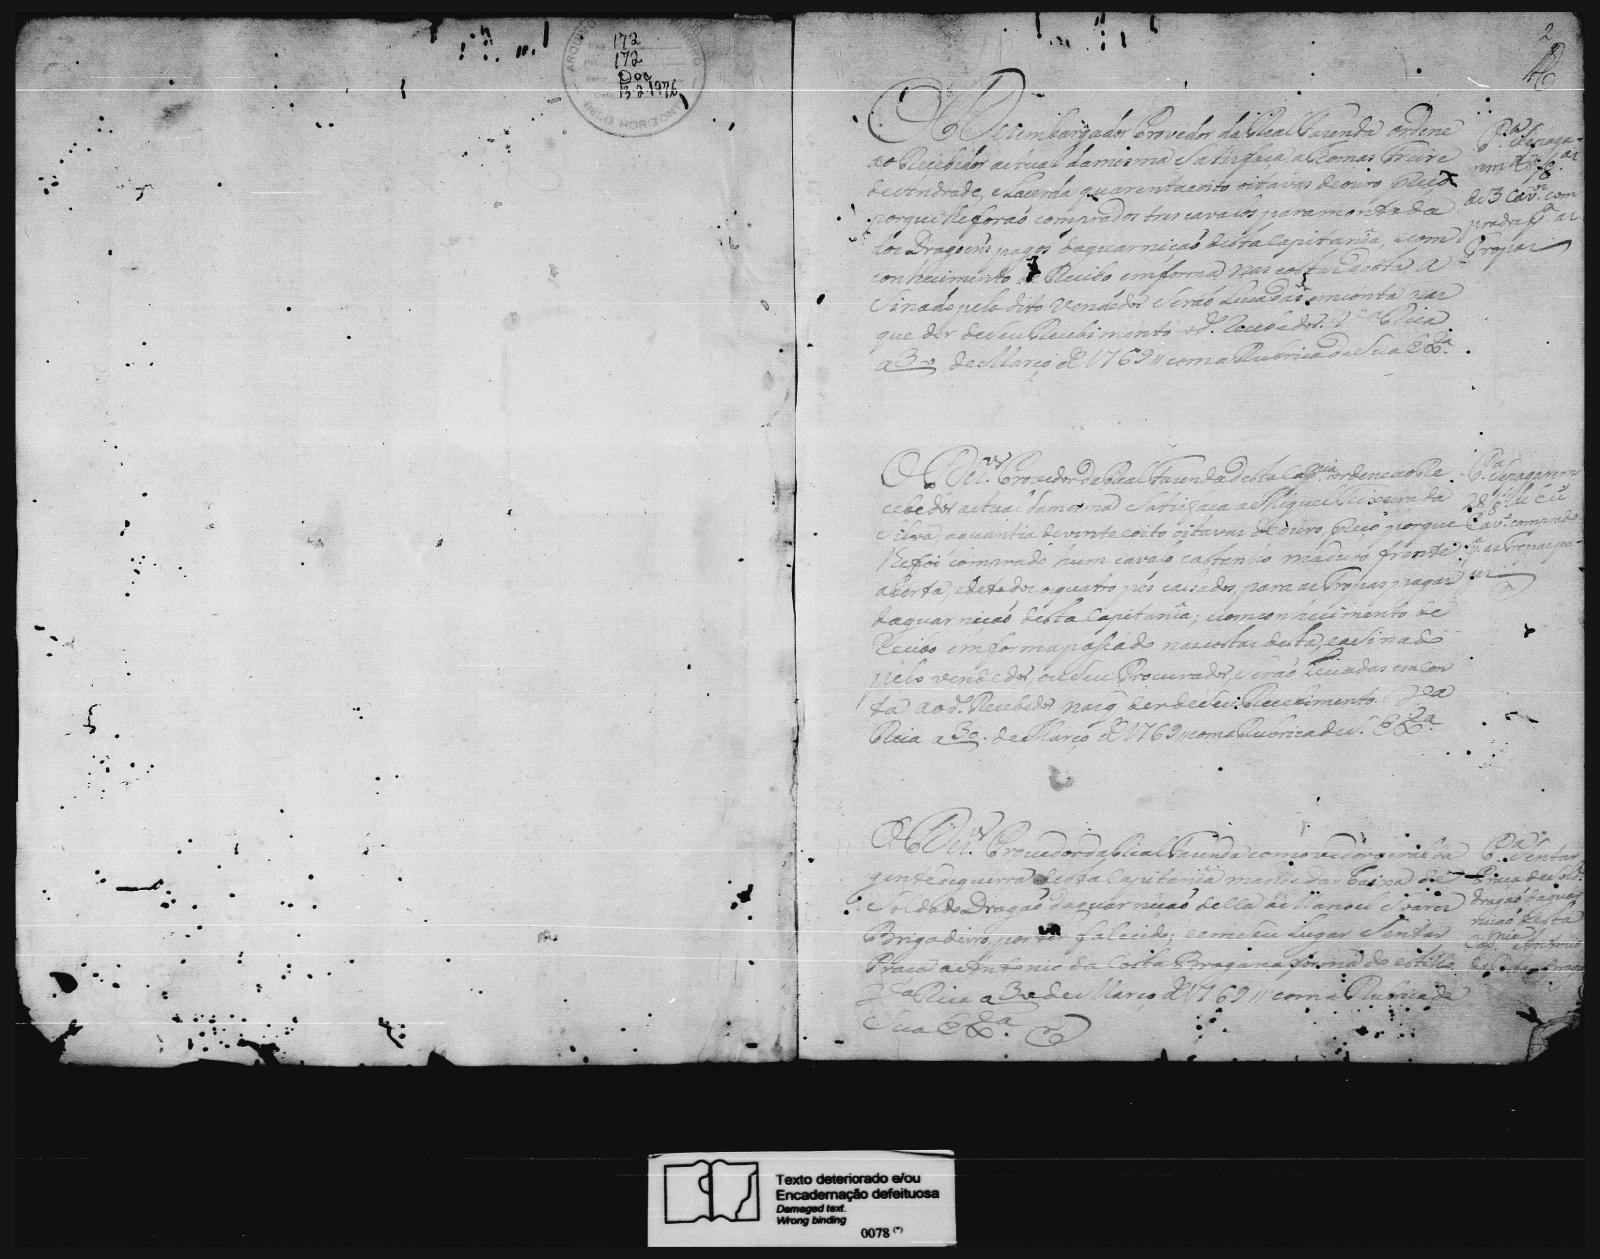 ARQUIVO
172
172
Doc
13-2-1976
BELO HORIZONTE
2
O Dezembargador Provedor da Real Fazenda ordene
ao Recebedor actual damesma Satisfaça a Thomas Freire
de Andrade, e Lacerda quarenta e oito oitavas de ouro
porque lhe foraõ comprados tres cavalos para monta da
dos Dragoens pagos daguarniçaõ desta Capitania, e com
conhecimento de Recibo em forma, nas costas desta A
Sinado pelo dito Vendedor Seraõ Levadas em conta nas
que der de seu Recebimento o d.º Recebedor. V.ª Rica
a 30 de Março de 1769 // com a Rubrica de Sua Ex.ª
P.ª Se paga-
rem 48/8as
de 3 Cav.os com
prados p.ª as
Tropas
O Dez.or Provedor da Real Fazenda desta Cap.nia ordene ao Re
cebedor actual damesma Satisfaça a Miguel Teixeira da
Silva, a quantia de vinte e oito oitavas de ouro, porque
lhe foi comprado hum cavalo castanho maduro frente
aberta, e de todos os quatro pés calsados, para as Tropas pagas
daguarniçaõ desta Capitania; e com conhecimento de
Recibo em forma passado nas costas desta, e asinado
pelo vendedor, ou Seu Procurador, Seraõ Levadas em con
ta ao d.º Recebedor nas q der de seu Recebimento. V.ª
Rica a 30 de Março de 1769 // com a Rubrica de S. Ex.ª
P.ª Se pagarem
28/8as de hũ
Cav.º comprado
p.ª as Tropas pa-
gas
O Dez.or Provedor da Real Fazenda como vedor geral da
gente de guerra desta Capitania mande dar baixa de
Soldado Dragaõ daguarniçaõ della a Manoel Soares
Brigadeiro, por ter falecido; e em seu Lugar Sentar
Praça a Antonio da Costa Bragança forma do estillo
V.ª Rica a 30 de Março de 1769 // com a Rubrica de
Sua Ex.ª
P.ª Sentar
Praça de Sold.º
dragaõ daguar
niçaõ desta
Cap.nia Antonio
da Costa Bragan
Texto deteriorado e/ou
Encadernação defeituosa
Damaged text.
Wrong binding
0078 (*)